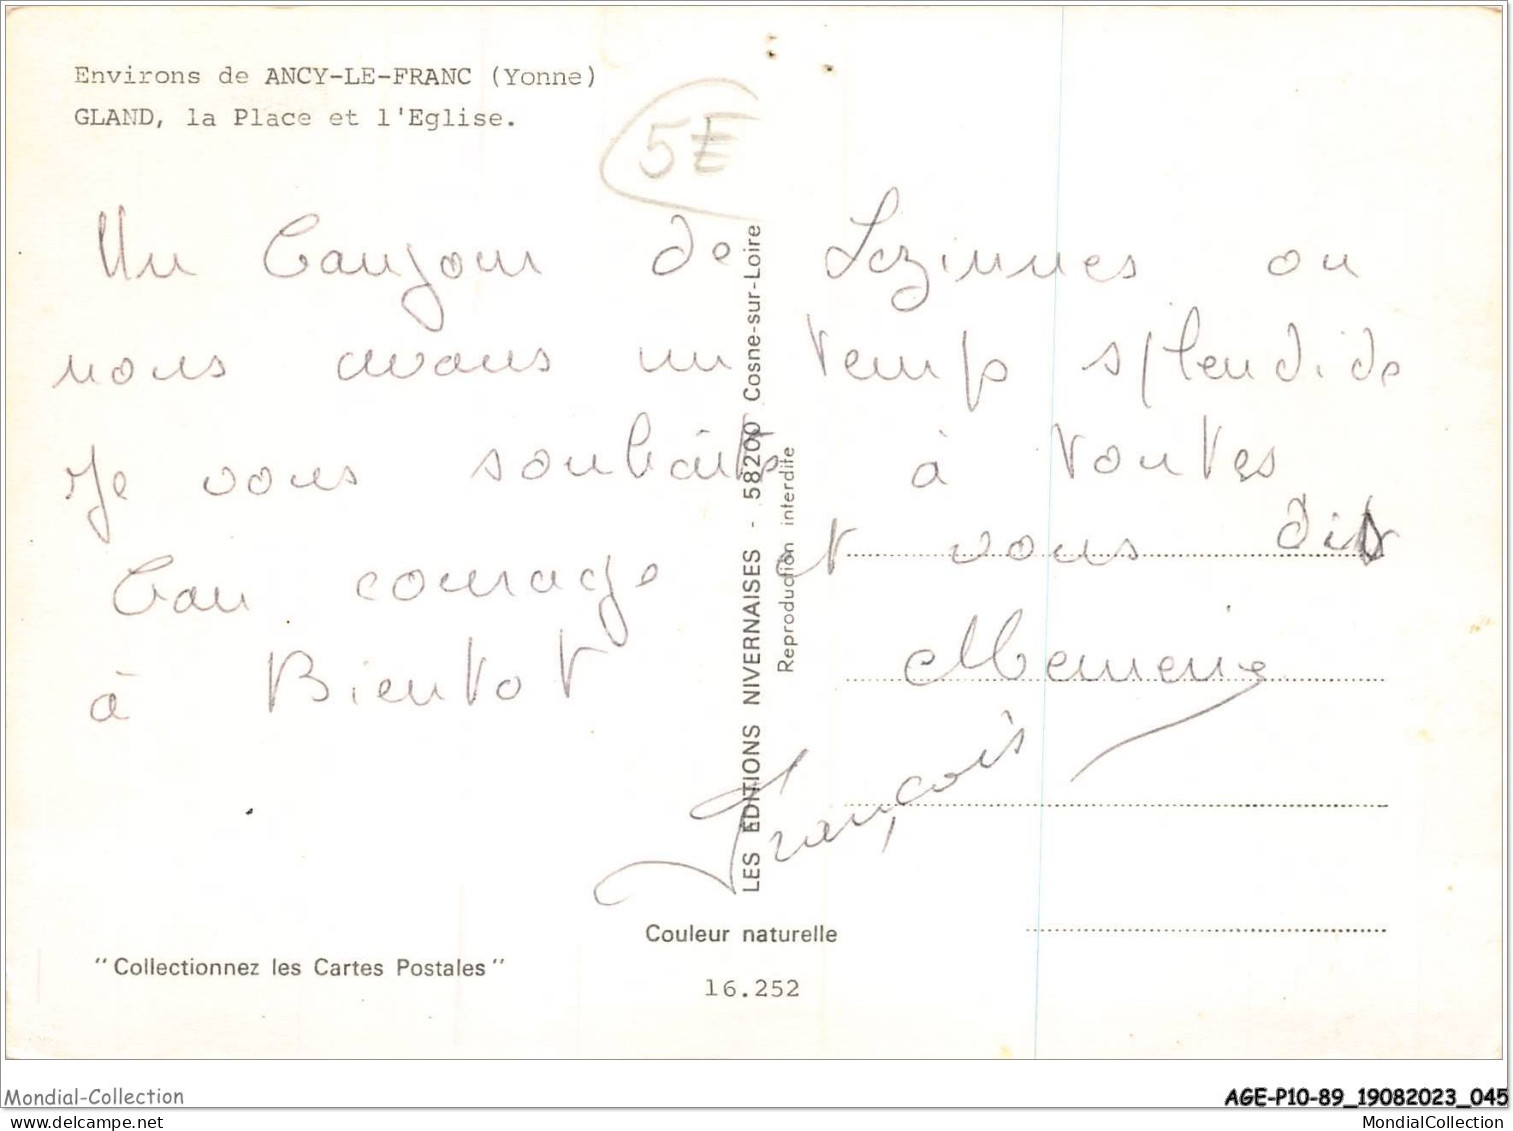 Environs de ANCY-LE-FRANC (Yonne)
GLAND, la Place et l'Eglise.
5E
Un Bonjour de Lezinnes ou
nous avons un temps splendide
Je vous souhaite à toutes
bon courage et vous dit
à Bientot
François
LES EDITIONS NIVERNAISES - 58200 Cosne-sur-Loire
Reproduction interdite
Couleur naturelle
16.252
"Collectionnez les Cartes Postales"
Mondial-Collection
AGE-P10-89_19082023_045
delcampe.net
MondialCollection